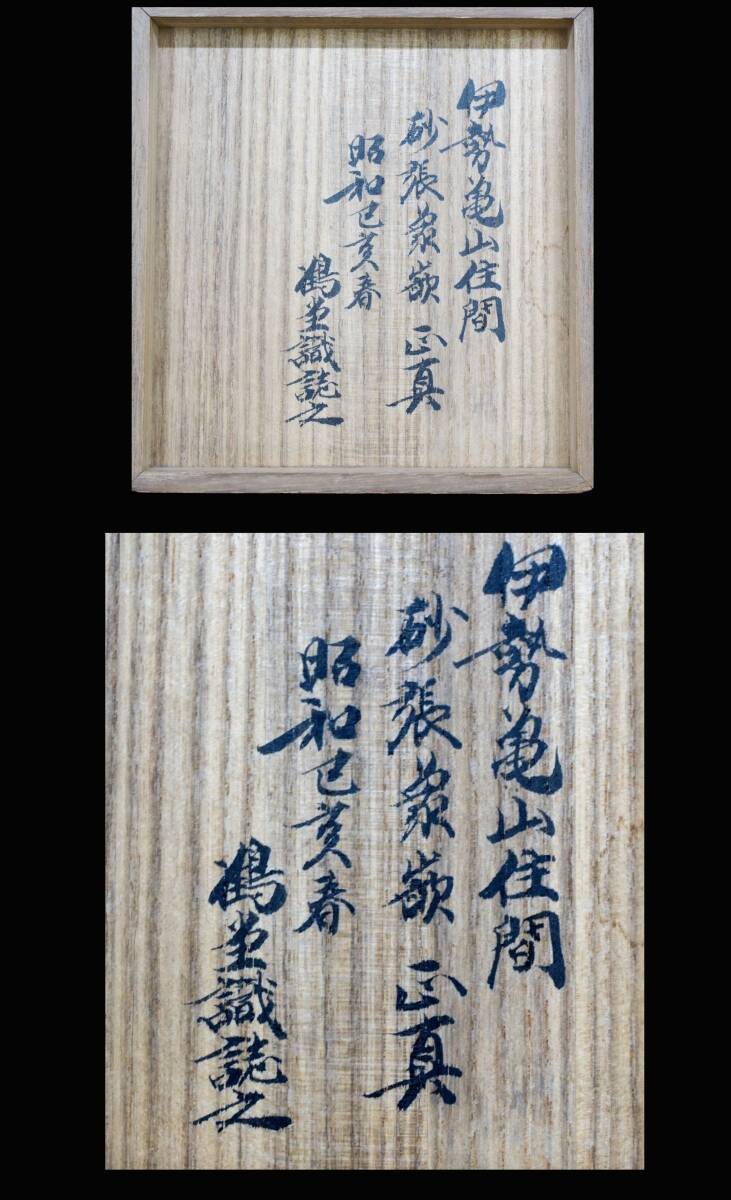 伊勢亀山住間
砂張象嵌 正真
昭和己亥春
鶴堂識誌之
伊勢亀山住間
砂張象嵌 正真
昭和己亥春
鶴堂識誌之